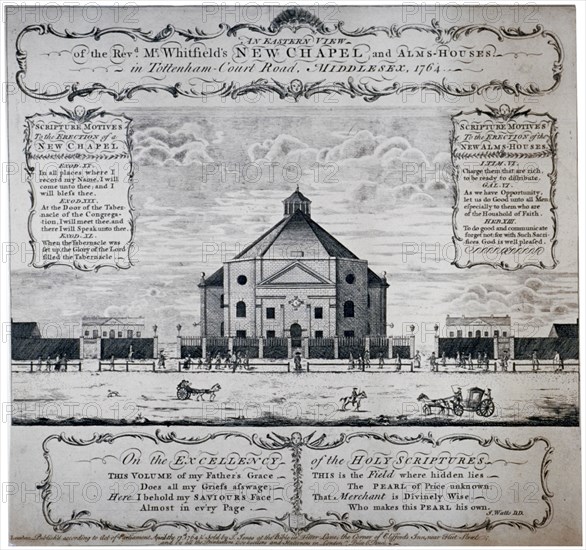 AN EASTERN VIEW
of the Rev.d Mr. Whitfield's NEW CHAPEL and ALMS-HOUSES
in Tottenham-Court Road, MIDDLESEX, 1764.
SCRIPTURE MOTIVES
To the ERECTION of a
NEW CHAPEL
EXOD. XX.
In all places where I
record my Name, I will
come unto thee; and I
will bless thee.
EXOD. XXIX.
At the Door of the Taber-
nacle of the Congrega-
tion, I will meet thee, and
there I will Speak unto thee.
EXOD. XL.
When the Tabernacle was
set up, the Glory of the Lord
filled the Tabernacle.
SCRIPTURE MOTIVES
To the ERECTION of the
NEW ALMS-HOUSES.
I. TIM. VI.
Charge them that are rich,
to be ready to distribute.
GAL. VI.
As we have Opportunity,
let us do Good unto all Men
especially to them who are
of the Houshold of Faith.
HEB. XIII.
To do good and communicate
forget not: for with Such Sacri-
fices God is well pleased.
On the EXCELLENCY
THIS VOLUME of my Father's Grace
Does all my Griefs asswage;
Here I behold my SAVIOURS Face
Almost in ev'ry Page
of the HOLY SCRIPTURES
THIS is the Field where hidden lies
The PEARL of Price unknown;
That Merchant is Divinely Wise
Who makes this PEARL his own.
I. Watts D.D.
London, Publish'd according to Act of Parliament 1764 & Sold by at the Bible in Fetter Lane, the Corner of Cliffords Inn, near Fleet Street